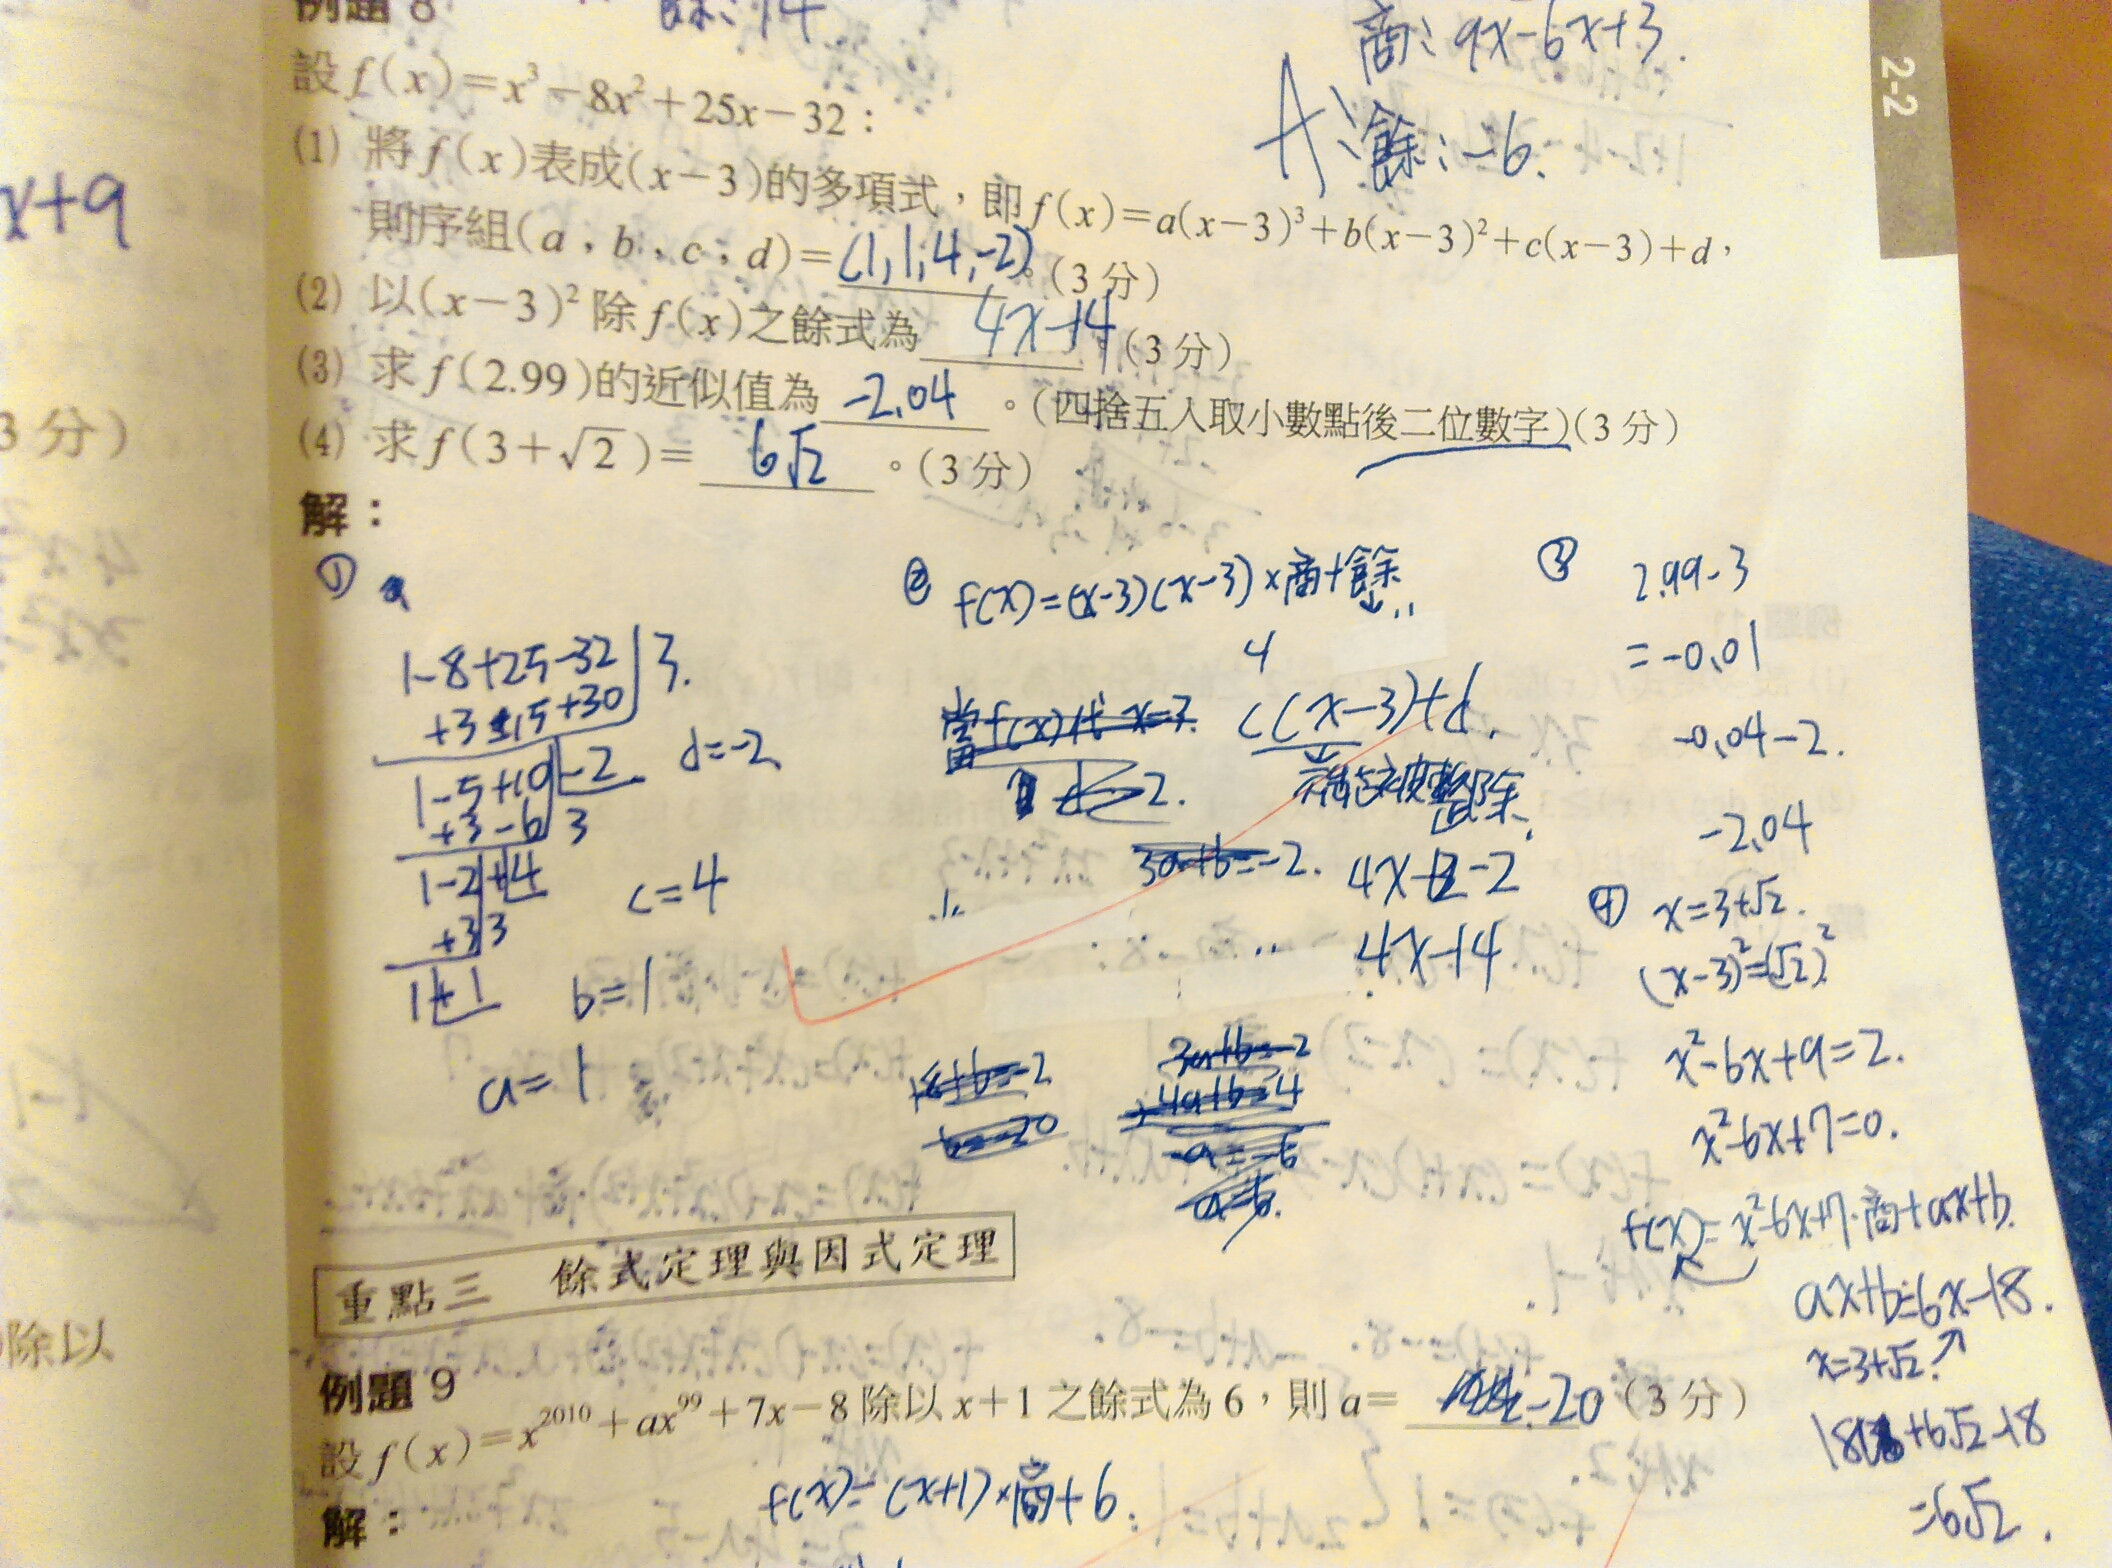 例題 8
餘：14
商：9x-6x+3.
A：餘：-6.
2-2
設 f(x)=x³-8x²+25x-32：
(1) 將 f(x)表成(x-3)的多項式，即 f(x)=a(x-3)³+b(x-3)²+c(x-3)+d，
則序組(a，b，c，d)=(1,1,4,-2)。(3 分)
(2) 以(x-3)²除 f(x)之餘式為 4x-14。(3 分)
(3) 求 f(2.99)的近似值為 -2.04。(四捨五入取小數點後二位數字)(3 分)
(4) 求 f(3+√2)= 6√2。(3 分)
解：
①
1-8+25-32 3.
+3-15+30
1-5+10 -2 d=-2
+3-6 3
1-2+4
c=4
+3 3
1+1 b=1
a=1
② f(x)=(x-3)(x-3)×商+餘
4
當f(x)代 x=3
c(x-3)+d.
不能被整除.
3a+b=-2. 4x-12-2
4x-14
3a+b=-2
4a+b=4
-a=-6
a=6.
③ 2.99-3
=-0.01
-0.04-2.
-2.04
④ x=3+√2.
(x-3)²=(√2)²
x²-6x+9=2.
x²-6x+7=0.
f(x)=x²-6x+7·商+ax+b.
ax+b=6x-18.
x=3+√2
18+6√2-18
=6√2.
重點三 餘式定理與因式定理
例題 9
設 f(x)=x²⁰¹⁰+ax⁹⁹+7x-8 除以 x+1 之餘式為 6，則 a= -20 (3 分)
解：
f(x)=(x+1)×商+6.
x+9
3 分)
除以